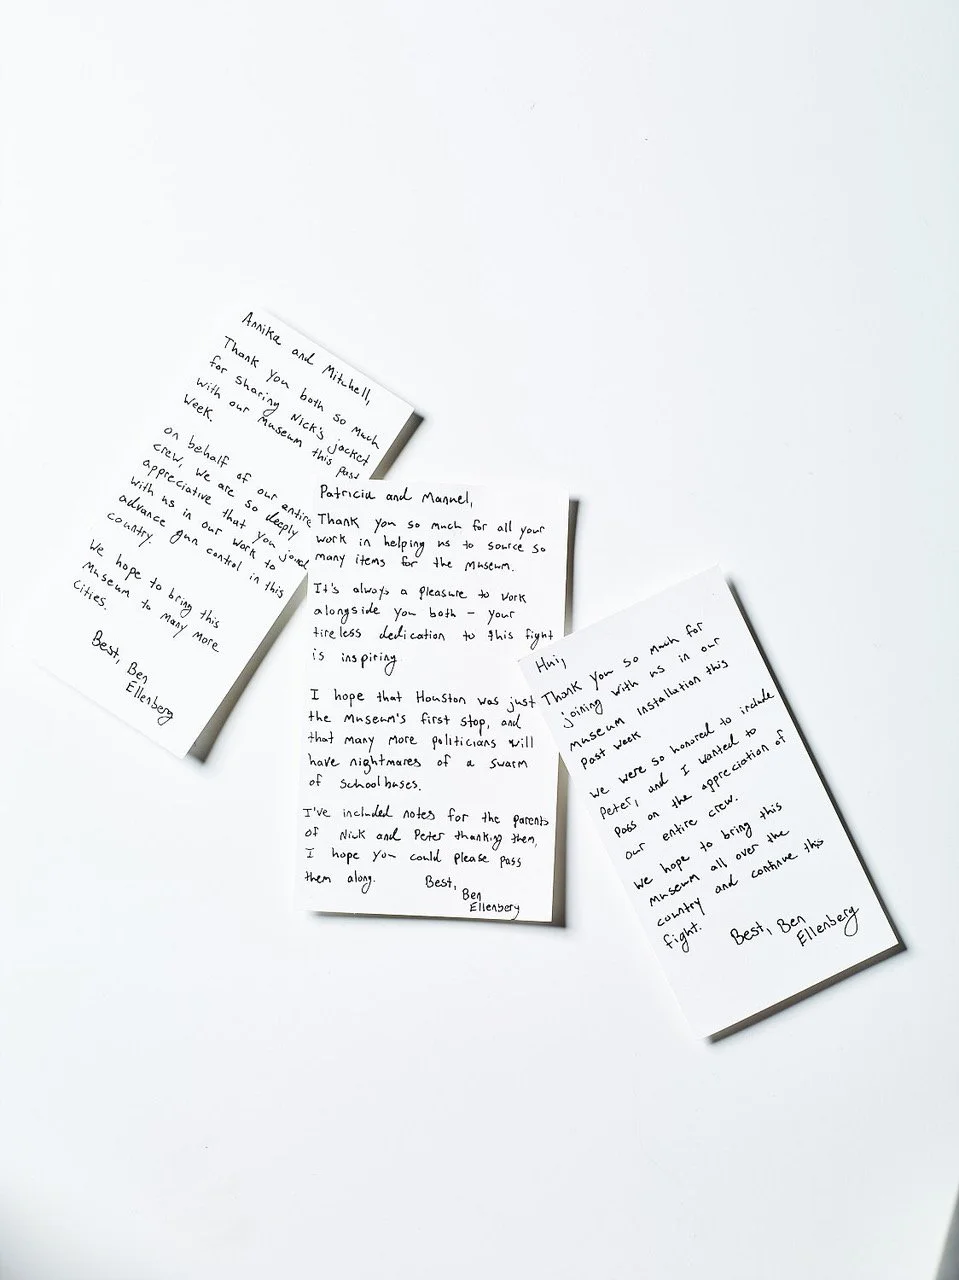 Annika and Mitchell,
Thank you both so much
for sharing Nick's jacket
with our Museum this past
week.
on behalf of our entire
crew, we are so deeply
appreciative that you joined
with us in our work to
advance gun control in this
country.
We hope to bring this
Museum to many more
cities.
Best, Ben
Ellenberg
Patricia and Manuel,
Thank you so much for all your
work in helping us to source so
many items for the Museum.
It's always a pleasure to work
alongside you both – your
tireless dedication to this fight
is inspiring
I hope that Houston was just
the Museum's first stop, and
that many more politicians will
have nightmares of a swarm
of schoolbuses.
I've included notes for the parents
of Nick and Peter thanking them,
I hope you could please pass
them along.
Best,
Ben
Ellenberg
Hui,
Thank you so much for
joining with us in our
museum installation this
past week
We were so honored to include
Peter, and I wanted to
pass on the appreciation of
our entire crew.
We hope to bring this
museum all over the
country and continue this
fight.
Best, Ben
Ellenberg